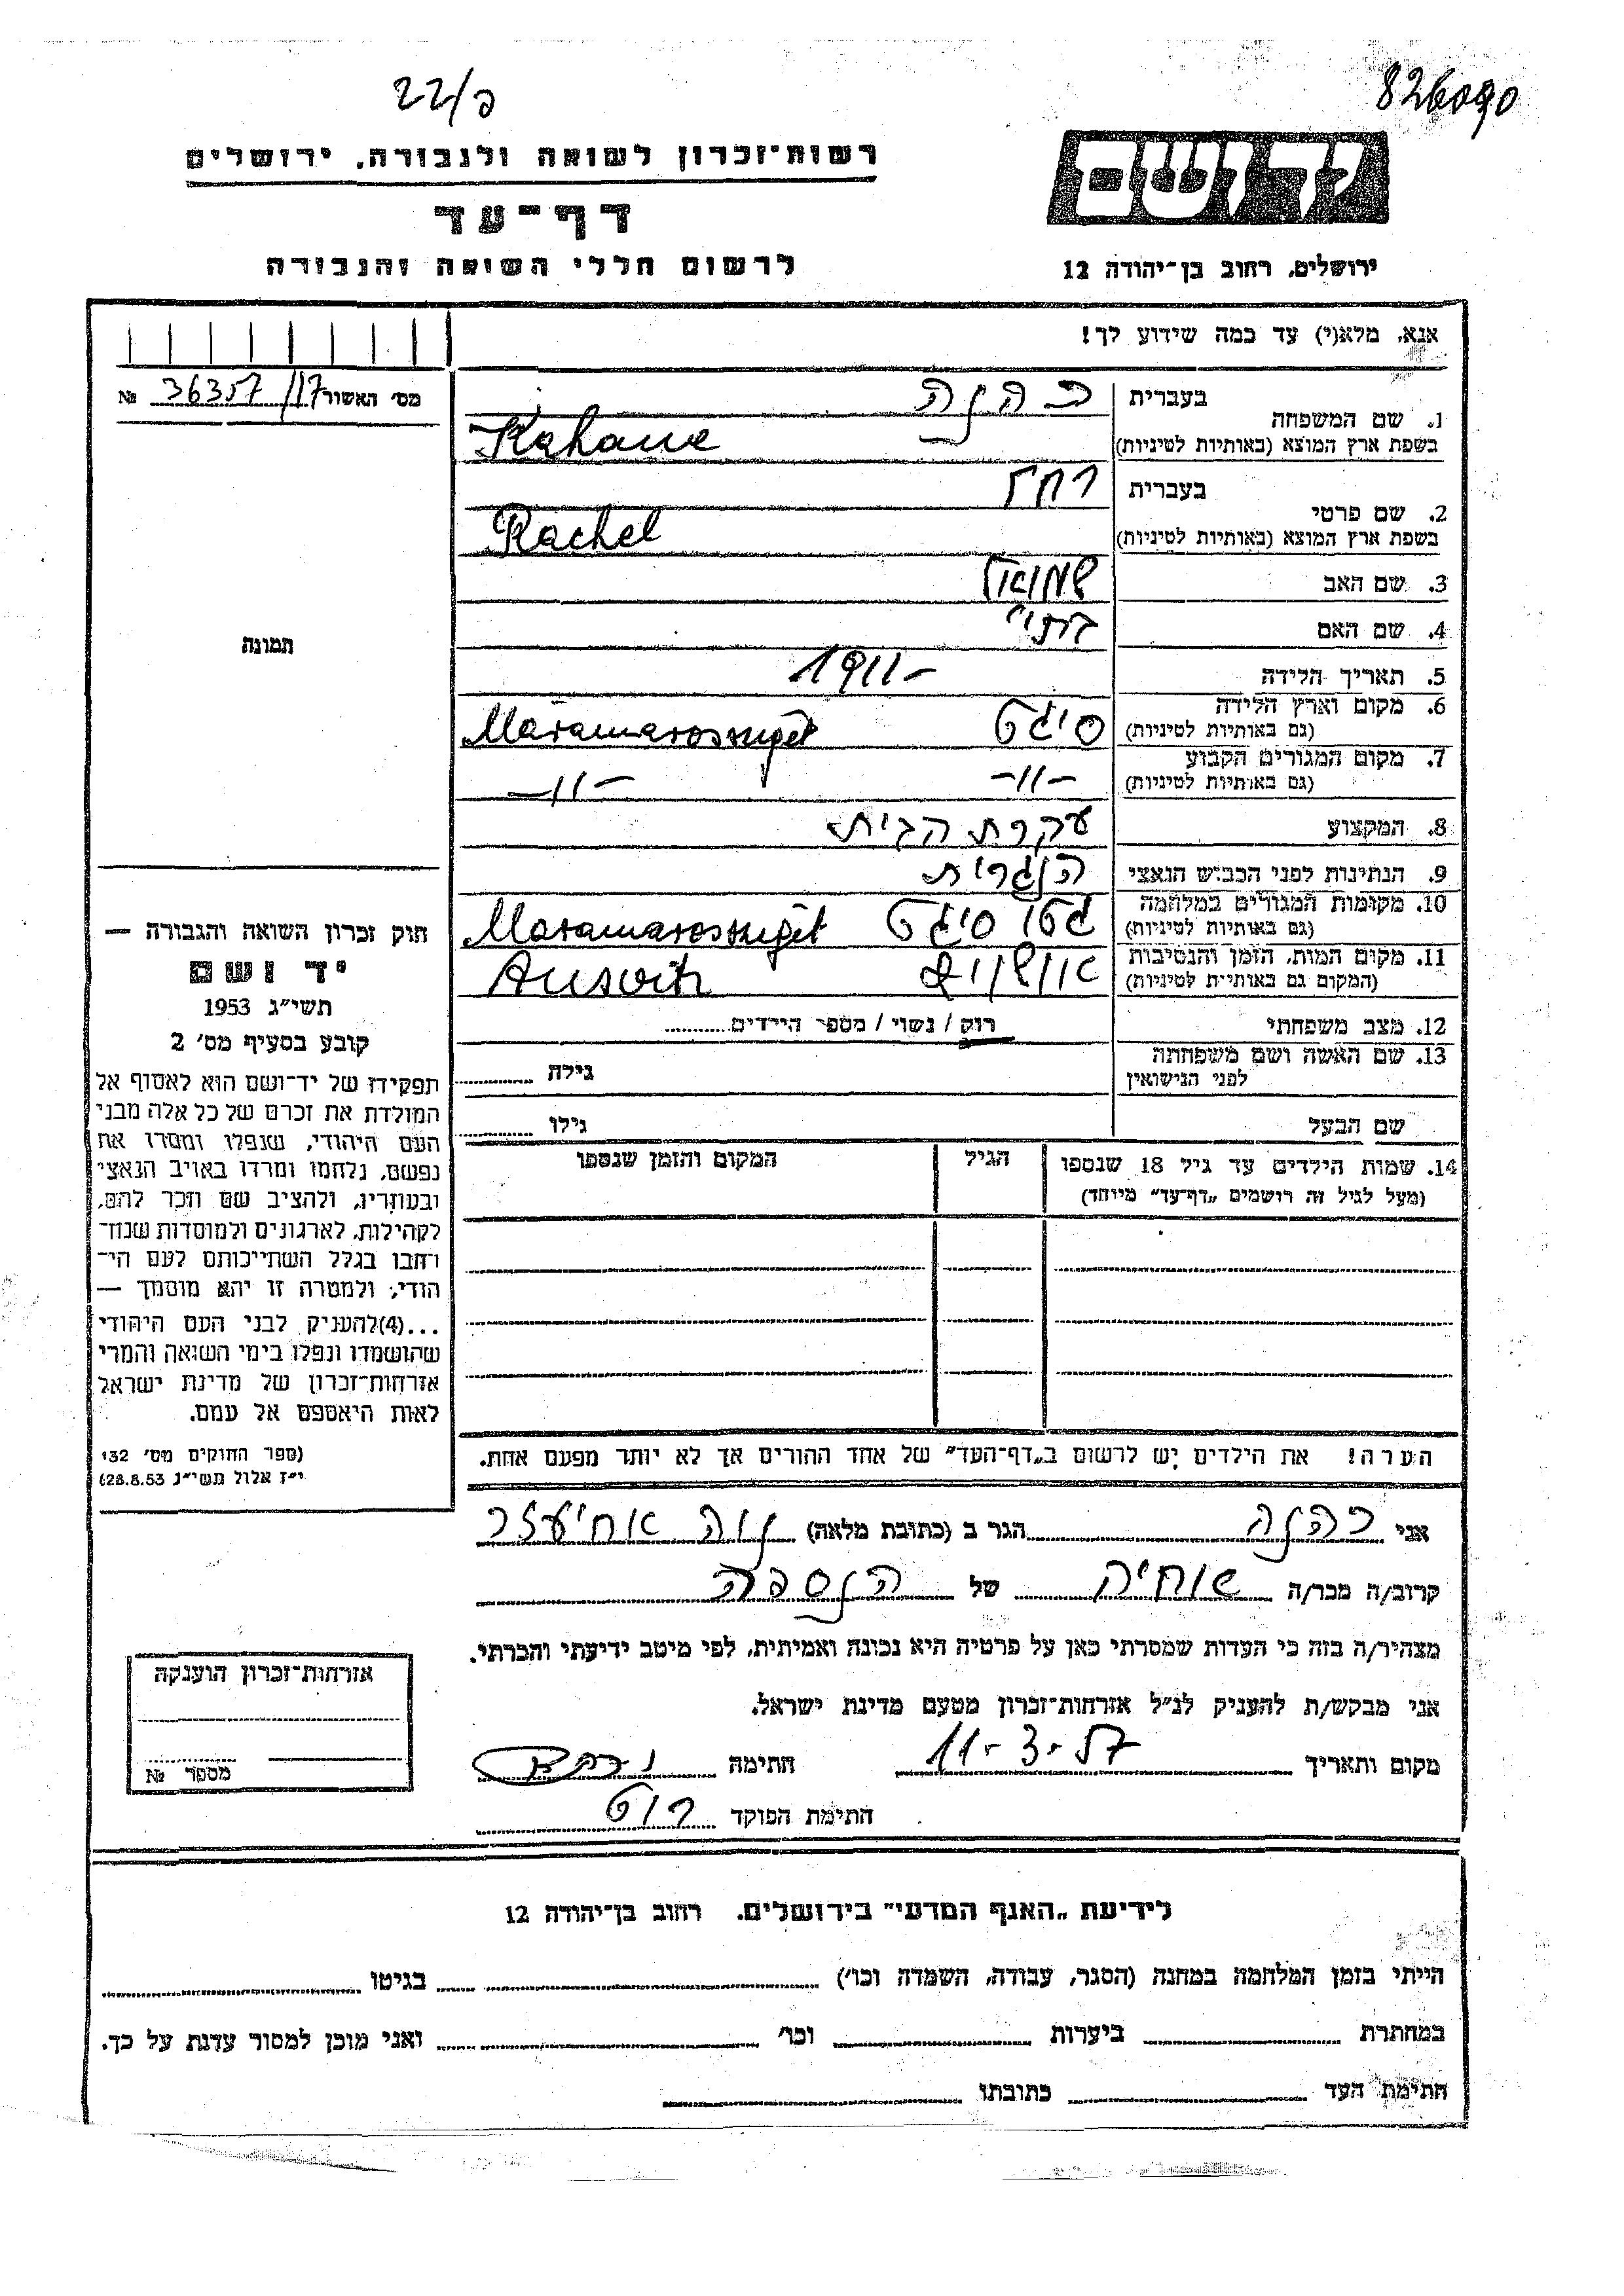 כ/22
826090
רשות־זכרון לשואה ולגבורה, ירושלים
דף־עד
לרשום חללי השואה והגבורה
ידושם
ירושלים, רחוב בן־יהודה 12
אנא, מלא(י) עד כמה שידוע לך!
מס׳ האשור 17/36357 №
תמונה
חוק זכרון השואה והגבורה —
יד ושם
תשי״ג 1953
קובע בסעיף מס׳ 2
תפקידו של יד־ושם הוא לאסוף אל
המולדת את זכרם של כל אלה מבני
העם היהודי, שנפלו ומסרו את
נפשם, נלחמו ומרדו באויב הנאצי
ובעוזריו, ולהציב שם וזכר להם,
לקהילות, לארגונים ולמוסדות שנח־
רחבו בגלל השתייכותם לעם הי־
הודי; ולמטרה זו יהא מוסמך —
...(4)להעניק לבני העם היהודי
שהושמדו ונפלו בימי השואה והמרי
אזרחות־זכרון של מדינת ישראל
לאות היאספם אל עמם.
(ספר החוקים מס׳ 132
י״ז אלול תשי״ג 28.8.53)
1. שם המשפחה
בעברית כהנא
בשפת ארץ המוצא (באותיות לטיניות) Kahane
2. שם פרטי
בעברית רחל
בשפת ארץ המוצא (באותיות לטיניות) Rachel
3. שם האב שמואל
4. שם האם
5. תאריך הלידה 1911-
6. מקום וארץ הלידה (גם באותיות לטיניות) סיגט Maramarossziget
7. מקום המגורים הקבוע (גם באותיות לטיניות) -״- -״-
8. המקצוע עקרת הבית
9. הנתינות לפני הכבוש הנאצי הונגרית
10. מקומות המגורים במלחמה (גם באותיות לטיניות) גטו סיגט Maramarossziget
11. מקום המות, הזמן והנסיבות (המקום גם באותיות לטיניות) אושוויץ Auswitz
12. מצב משפחתי רוק / נשוי / מספר הילדים
13. שם האשה ושם משפחתה לפני הנישואין גילה
שם הבעל גילו
14. שמות הילדים עד גיל 18 שנספו הגיל המקום והזמן שנספו
(מעל לגיל זה רושמים „דף־עד״ מיוחד)
הערה! את הילדים יש לרשום ב„דף־העד״ של אחד ההורים אך לא יותר מפעם אחת.
אני כהנה הגר ב (כתובת מלאה) נוה אחיעזר
קרוב/ה מכר/ה של הנספה
מצהיר/ה בזה כי העדות שמסרתי כאן על פרטיה היא נכונה ואמיתית, לפי מיטב ידיעתי והכרתי.
אני מבקש/ת להעניק לנ״ל אזרחות־זכרון מטעם מדינת ישראל.
מקום ותאריך 11-3-57 חתימה
חתימת הפוקד רוט
אזרחות־זכרון הוענקה
מספר №
לידיעת „האגף המדעי״ בירושלים, רחוב בן־יהודה 12
הייתי בזמן המלחמה במחנה (הסגר, עבודה, השמדה וכו׳) בגיטו
במחתרת ביערות וכו׳ ואני מוכן למסור עדות על כך.
חתימת העד כתובתו